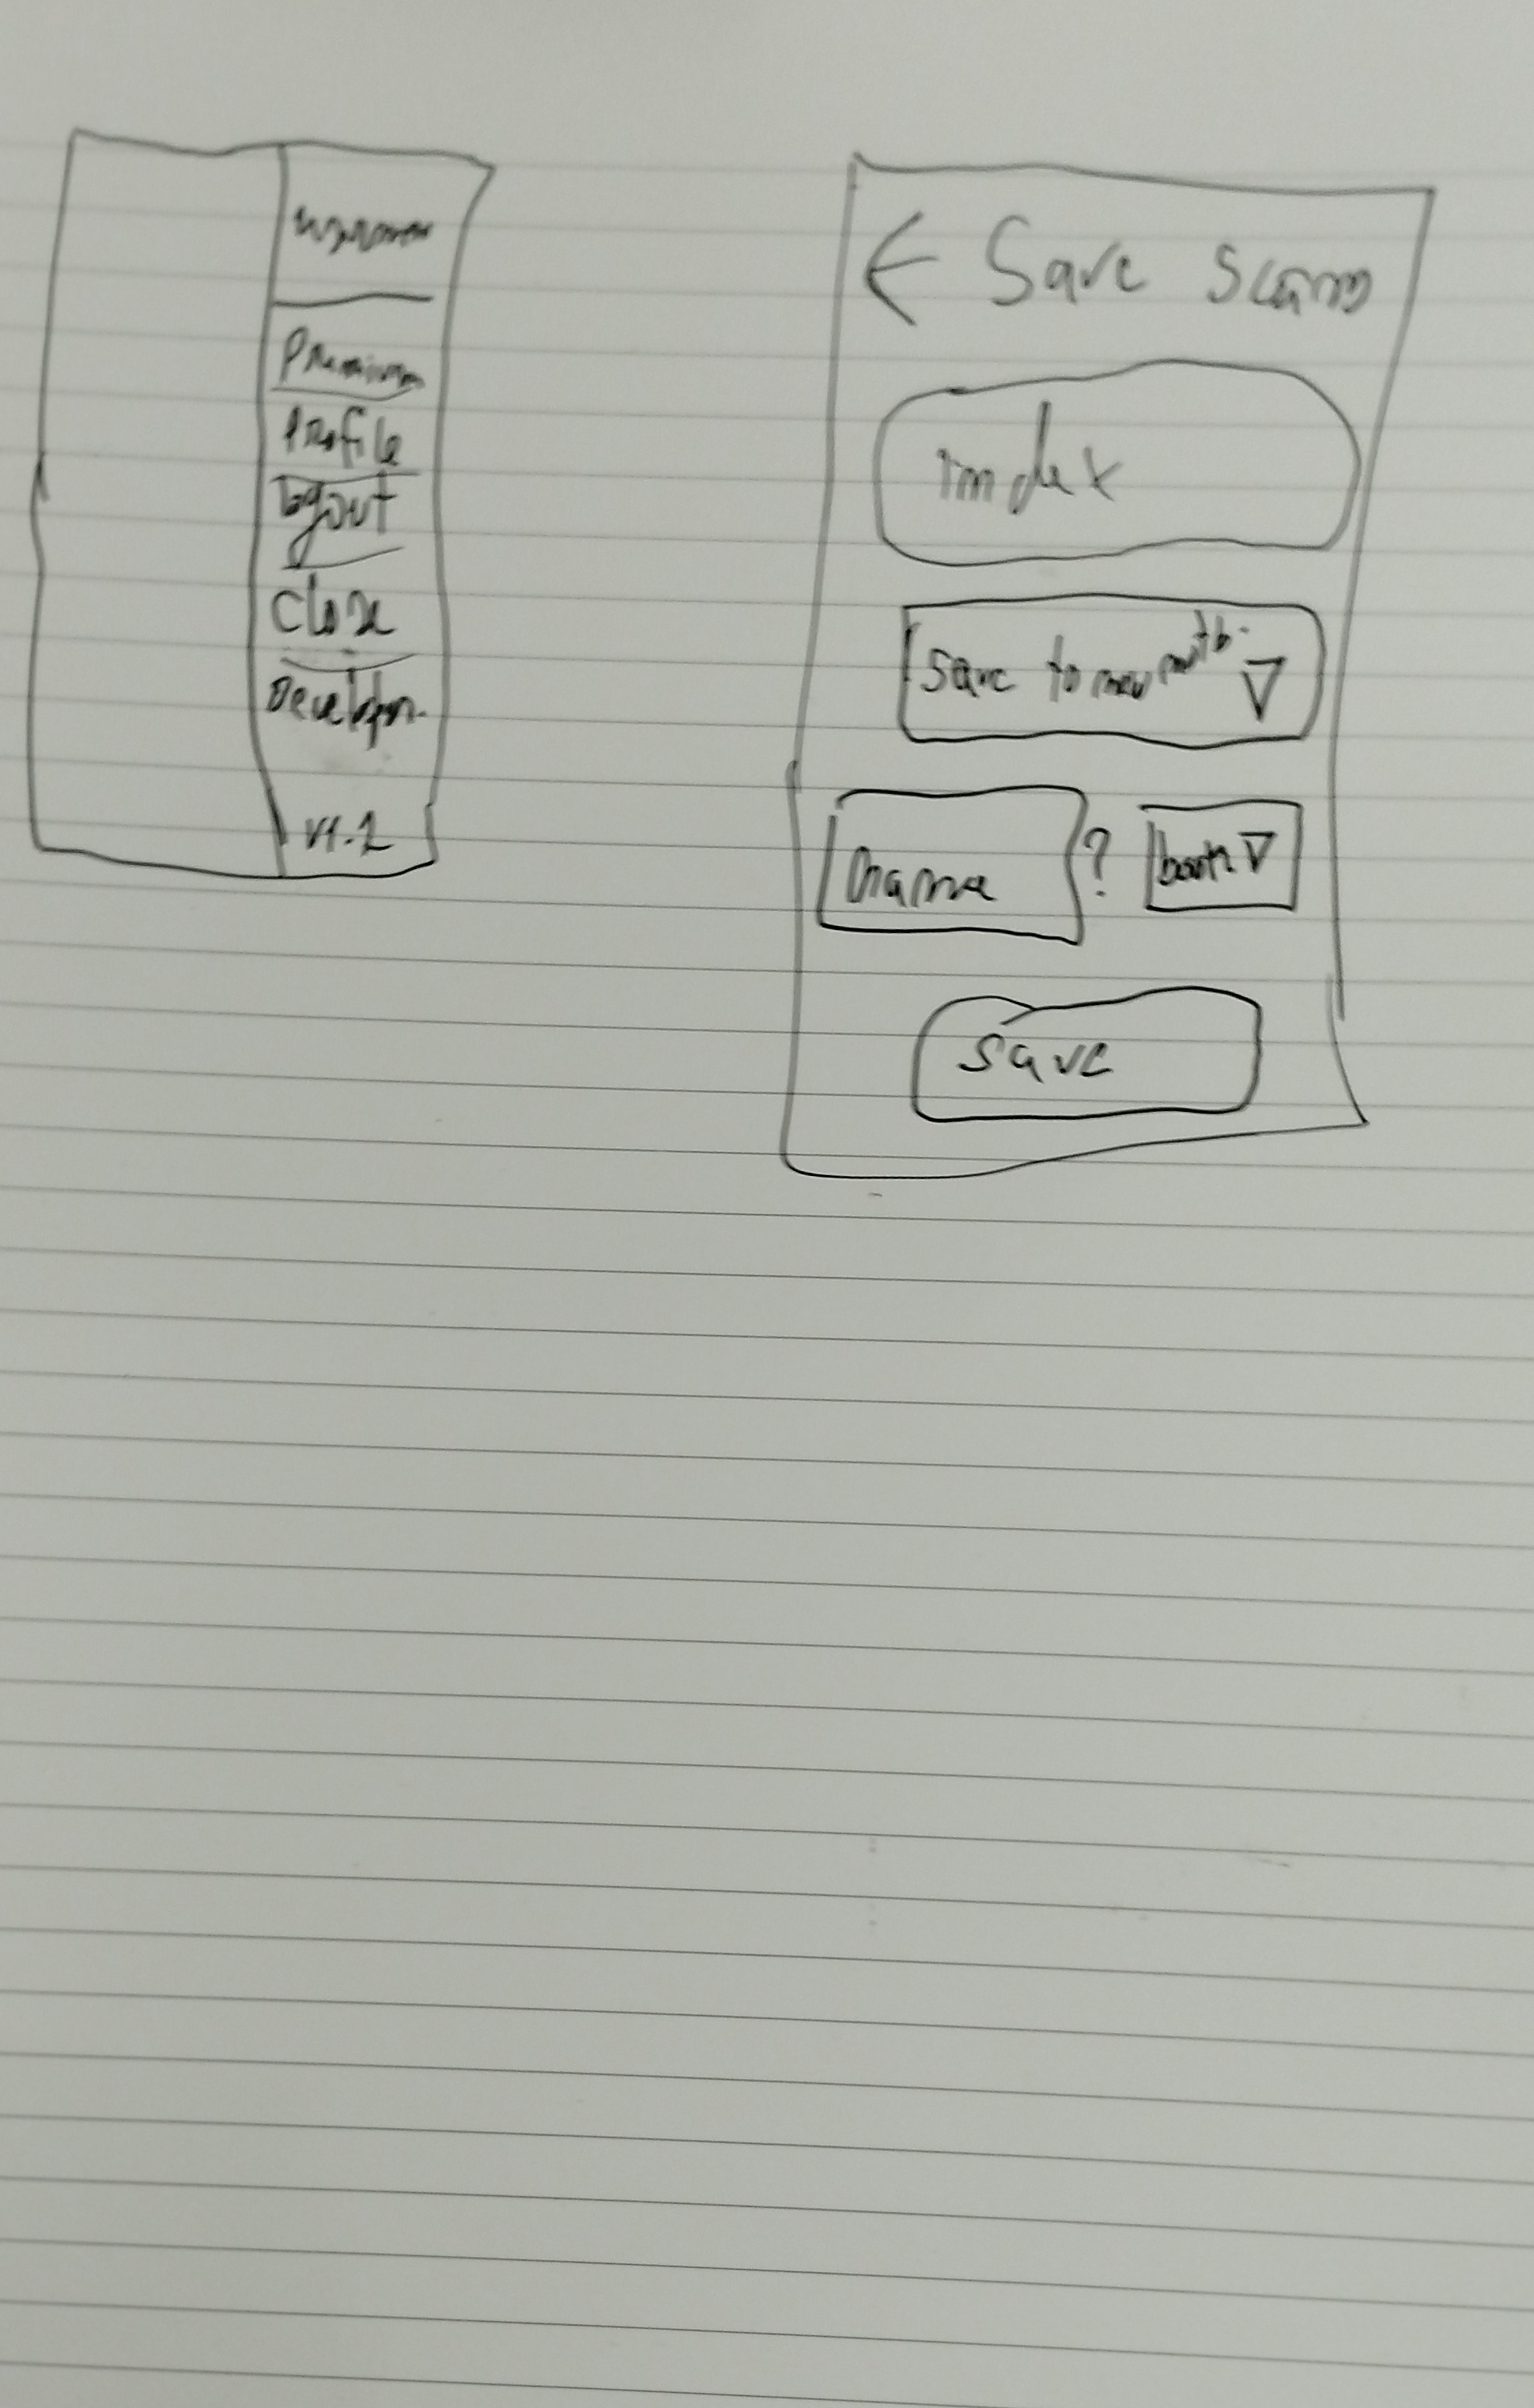 username
Premium
Profile
logout
Close
Develop.
v1.1
← Save scans
index
Save to new
name ?
Save